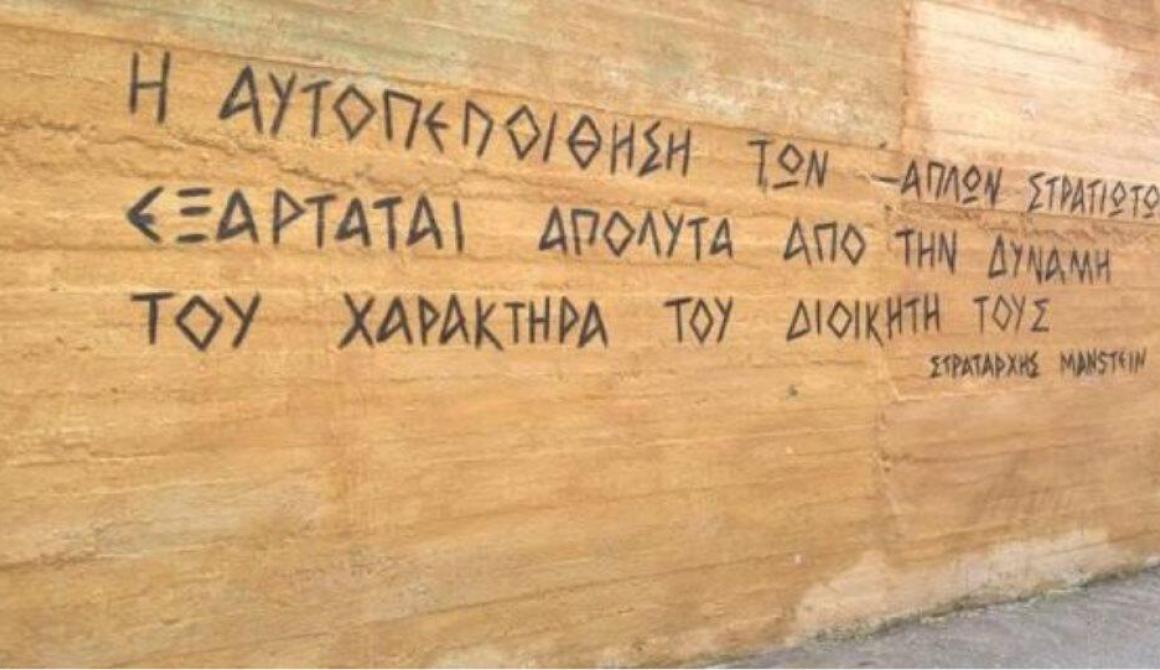 Η ΑΥΤΟΠΕΠΟΙΘΗΣΗ ΤΩΝ ΑΠΛΩΝ ΣΤΡΑΤΙΩΤΩ
ΕΞΑΡΤΑΤΑΙ ΑΠΟΛΥΤΑ ΑΠΟ ΤΗΝ ΔΥΝΑΜΗ
ΤΟΥ ΧΑΡΑΚΤΗΡΑ ΤΟΥ ΔΙΟΙΚΗΤΗ ΤΟΥΣ
ΣΤΡΑΤΑΡΧΗΣ MANSTEIN